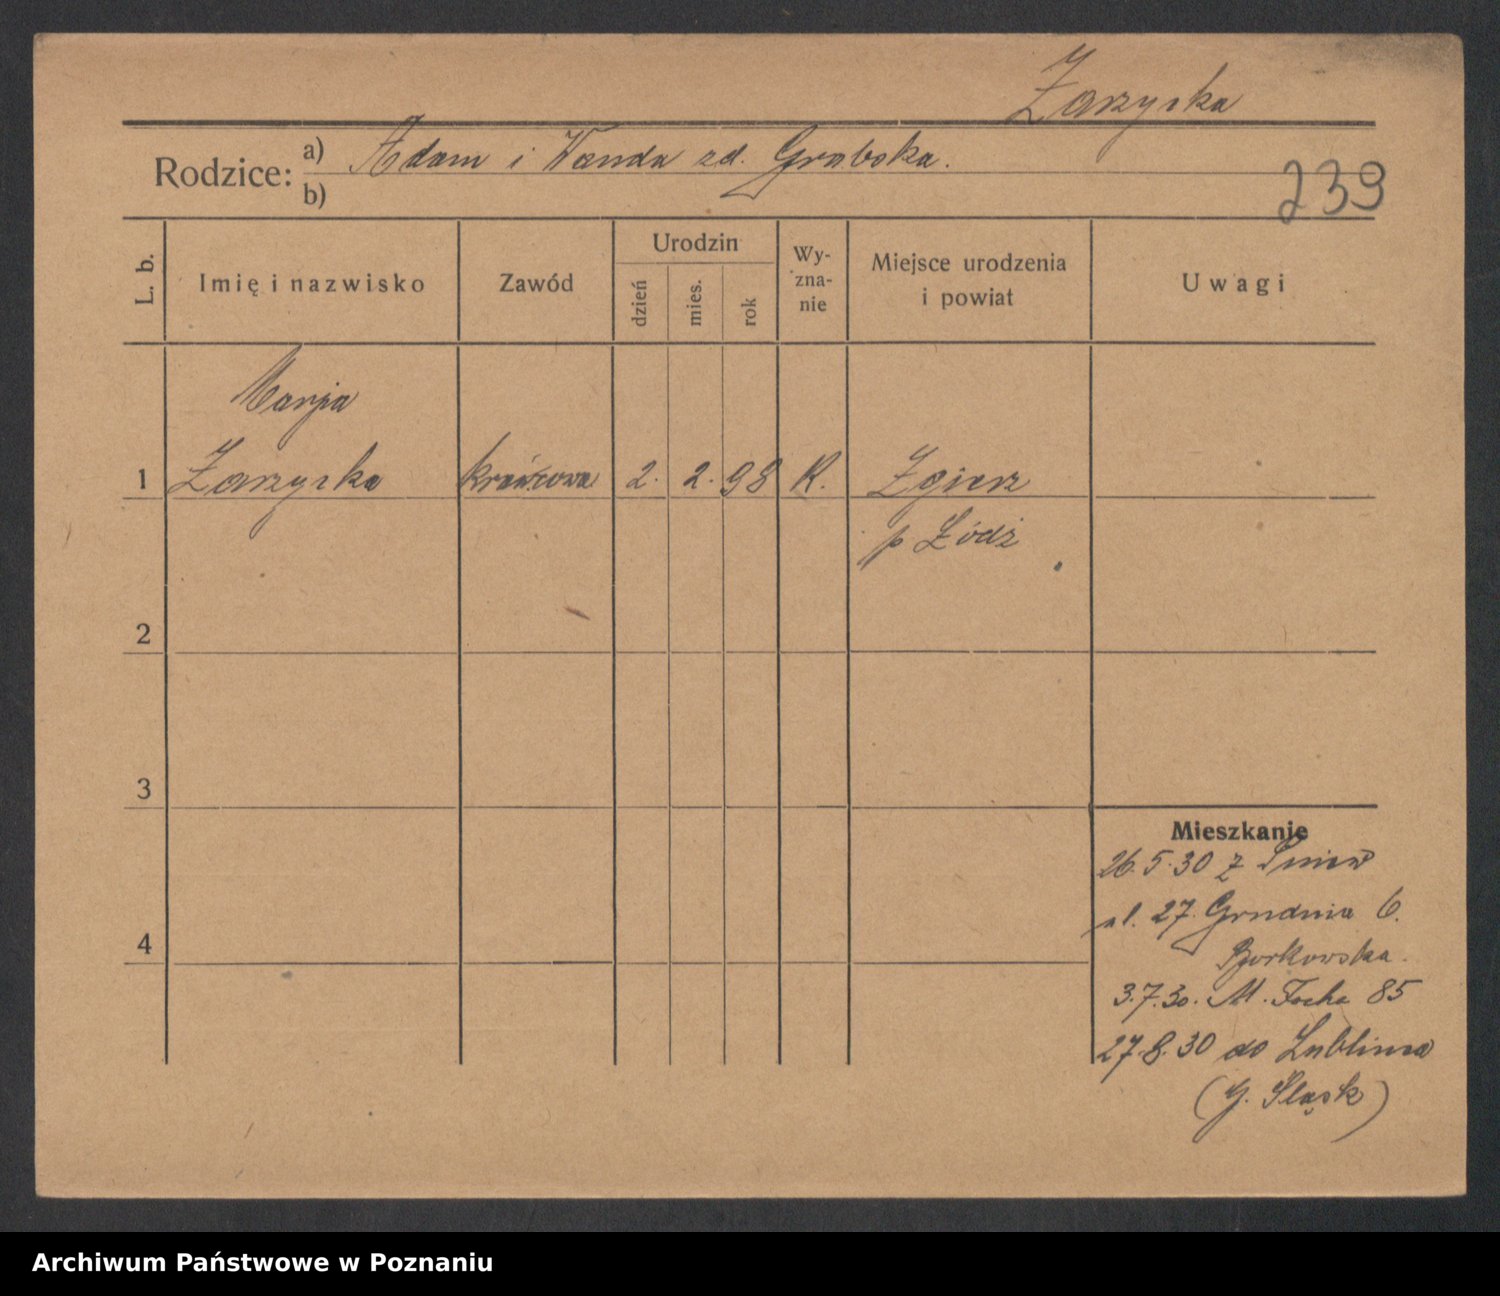 Zarzycka
Rodzice: a) Adam i Wanda zd. Grabska.
b)
239
L. b. Imię i nazwisko Zawód Urodzin dzień mies. rok Wy-zna-nie Miejsce urodzenia i powiat Uwagi
Marja
1 Zarzycka krawcowa 2. 2. 98 R. Zgierz
p Łódź
2
3
Mieszkanie
26.5.30 z Pniew
ul. 27. Grudnia 6.
4
Borkowska.
3.7.30. M. Focha 85
27.8.30 do Lublinca
(G. Śląsk)
Archiwum Państwowe w Poznaniu